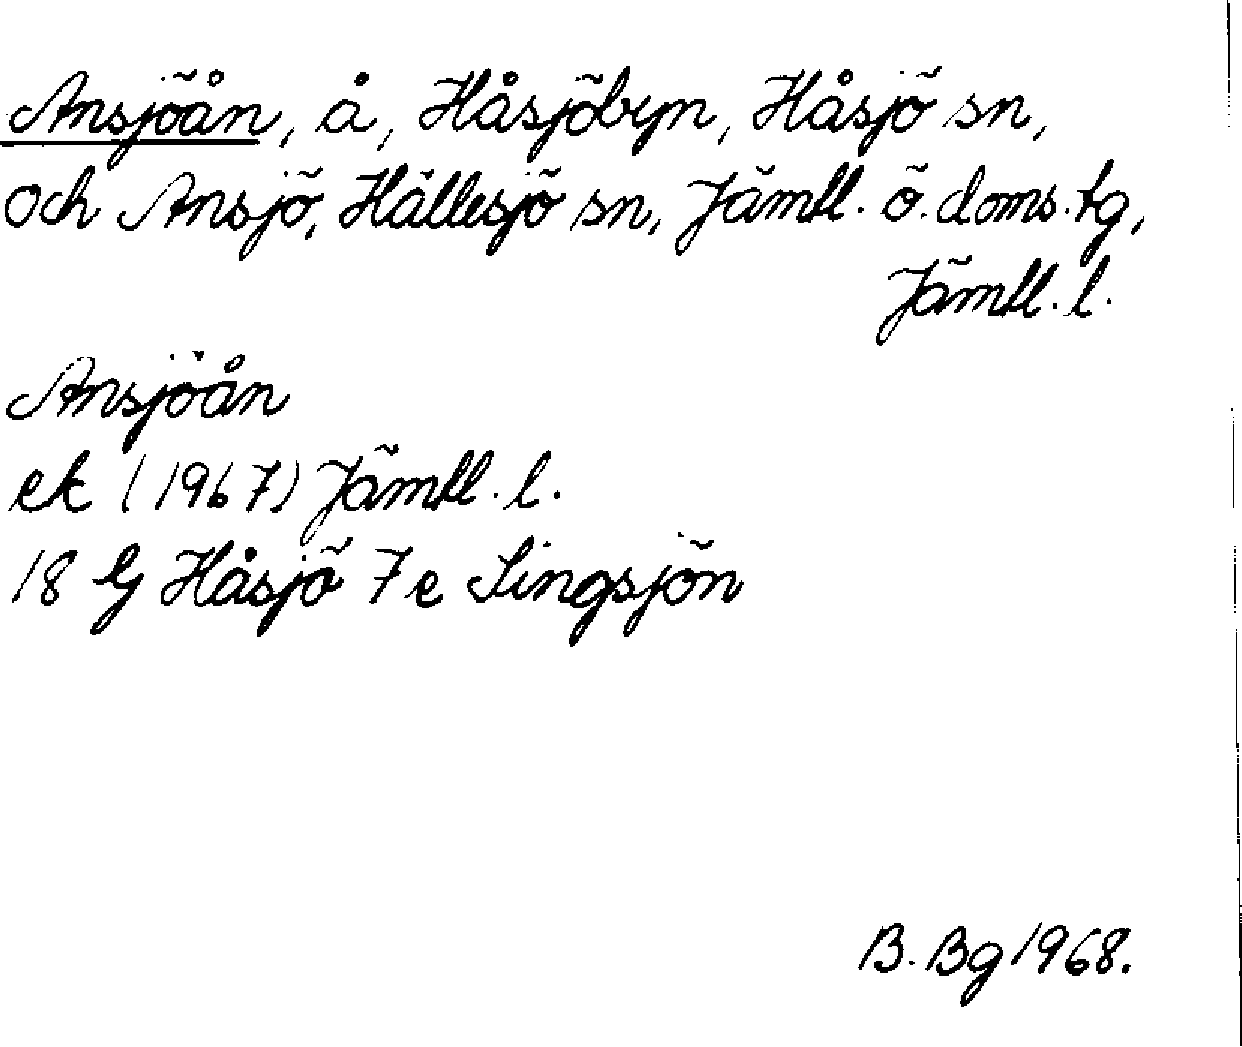 Ansjöån, å, Håsjöbyn, Håsjö sn,
och Ansjö, Hällesjö sn, Jämtl. ö. doms. tg,
Jämtl. l.
Ansjöån
ek (1967) Jämtl. l.
18 G Håsjö 7e Singsjön
B. Bg 1968.